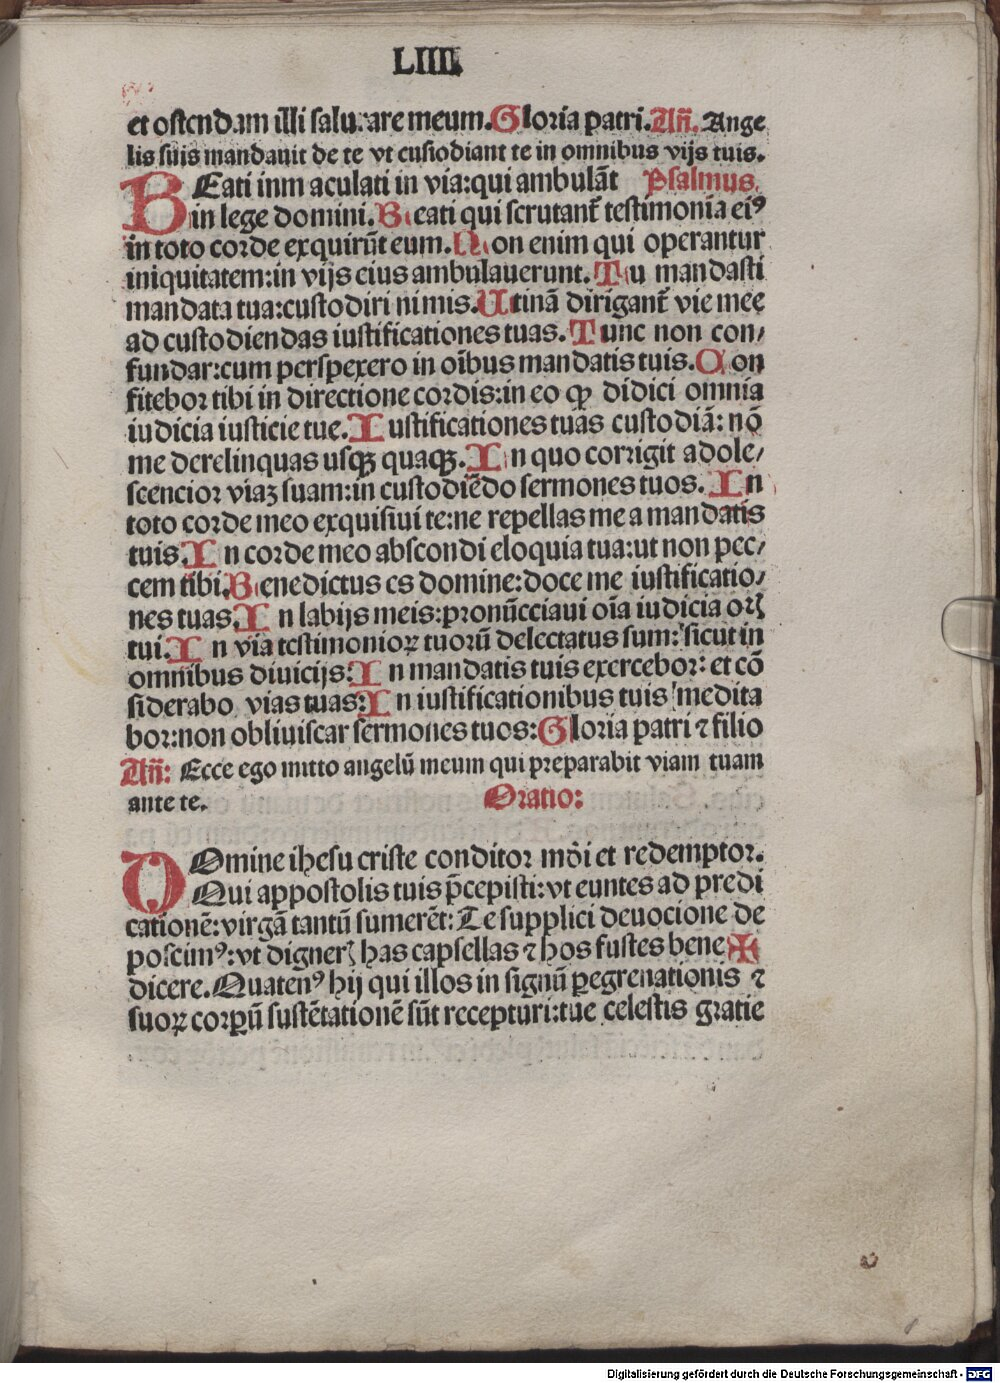 LIIII.
et ostendam illi salutare meum. Gloria patri. Añ. Ange
lis suis mandauit de te vt custodiant te in omnibus vijs tuis.
BEati inmaculati in via:qui ambulāt Psalmus.
in lege domini. Beati qui scrutant᷑ testimonia eiꝰ
in toto corde exquirūt eum. Non enim qui operantur
iniquitatem:in vijs eius ambulauerunt. Tu mandasti
mandata tua:custodiri nimis. Utinā dirigant᷑ vie mee
ad custodiendas iustificationes tuas. Tunc non con/
fundar:cum perspexero in oībus mandatis tuis. Con
fitebor tibi in directione cordis:in eo ꝙ didici omnia
iudicia iusticie tue. Iustificationes tuas custodiā: nō
me derelinquas usqꝫ quaqꝫ. In quo corrigit adole/
scencior viaꝫ suam:in custodiēdo sermones tuos. In
toto corde meo exquisiui te:ne repellas me a mandatis
tuis. In corde meo abscondi eloquia tua:ut non pec/
cem tibi. Benedictus es domine:doce me iustificatio/
nes tuas. In labijs meis:pronūcciaui oīa iudicia orꝭ
tui. In via testimonioꝝ tuorū delectatus sum: sicut in
omnibus diuicijs: In mandatis tuis exercebor: et cō
siderabo vias tuas: In iustificationibus tuis medita
bor:non obliuiscar sermones tuos: Gloria patri ⁊ filio
Añ: Ecce ego mitto angelū meum qui preparabit viam tuam
ante te. Oratio:
DOmine ihesu criste conditor mūdi et redemptor.
Qui appostolis tuis p̄cepisti:vt euntes ad predi
cationē:virgā tantū sumerēt: Te supplici deuocione de
poscimꝰ:vt dignerꝭ has capsellas ⁊ hos fustes bene ✠
dicere. Quatenꝰ hij qui illos in signū ꝑegrenationis ⁊
suoꝝ corꝑū sustētationē sūt recepturi:tue celestis gratie
Digitalisierung gefördert durch die Deutsche Forschungsgemeinschaft - DFG